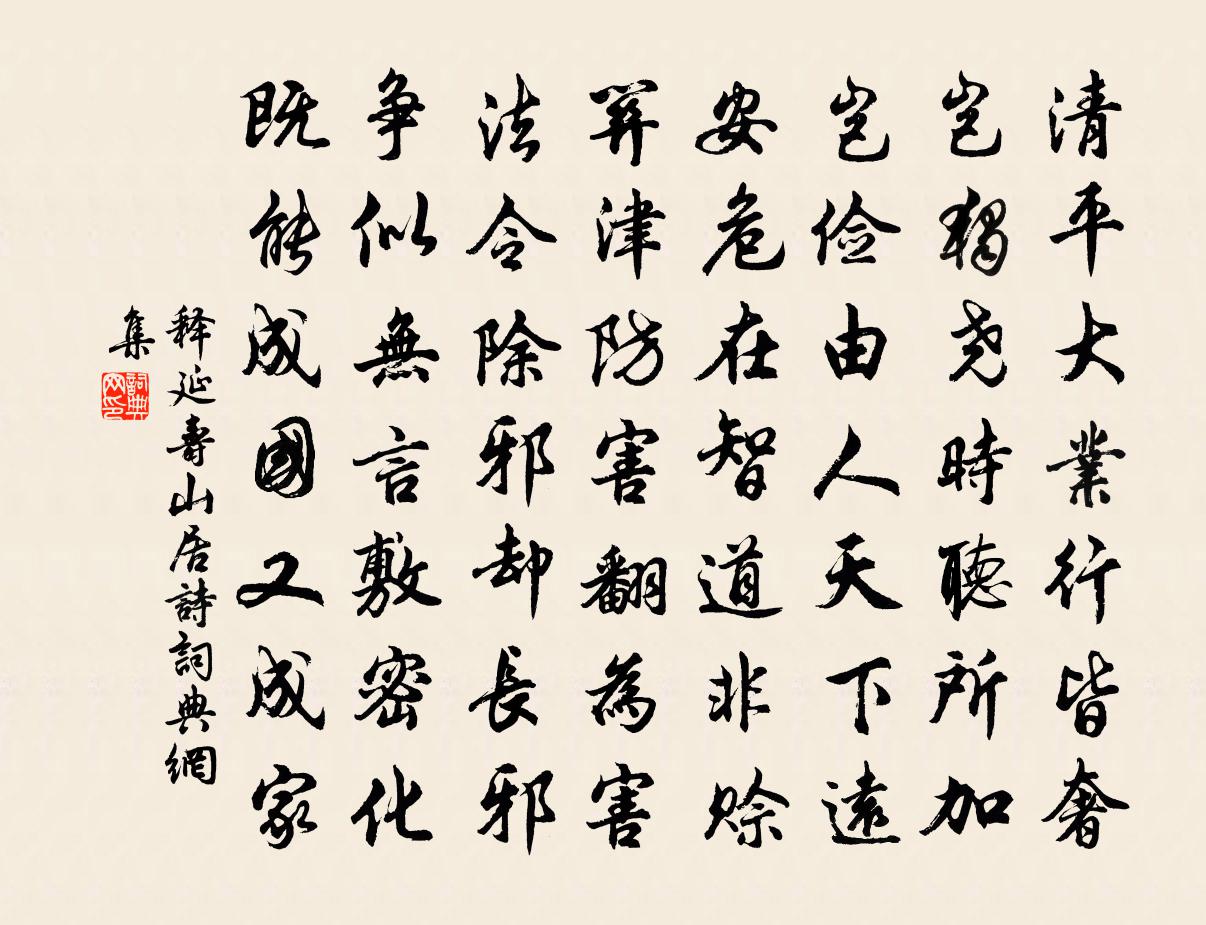 清平大業行皆奢
岂獨尧時聽所加
岂俭由人天下遠
安危在智道非赊
關津防害翻為害
法令除邪却長邪
争似無言敷密化
既能成國又成家
释延壽山居詩詞典網
集
詞典网印